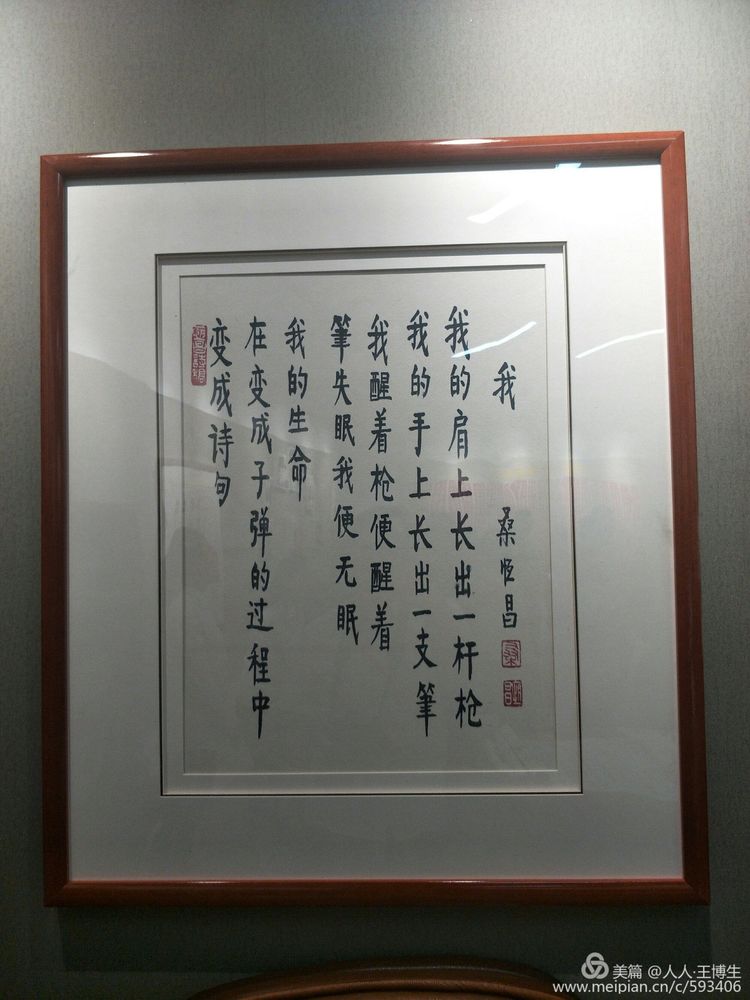 我 桑恒昌
我的肩上长出一杆枪
我的手上长出一支筆
我醒着枪便醒着
筆失眠我便无眠
我的生命
在变成子弹的过程中
变成诗句
美篇 @人人·王博生
www.meipian.cn/c/593406